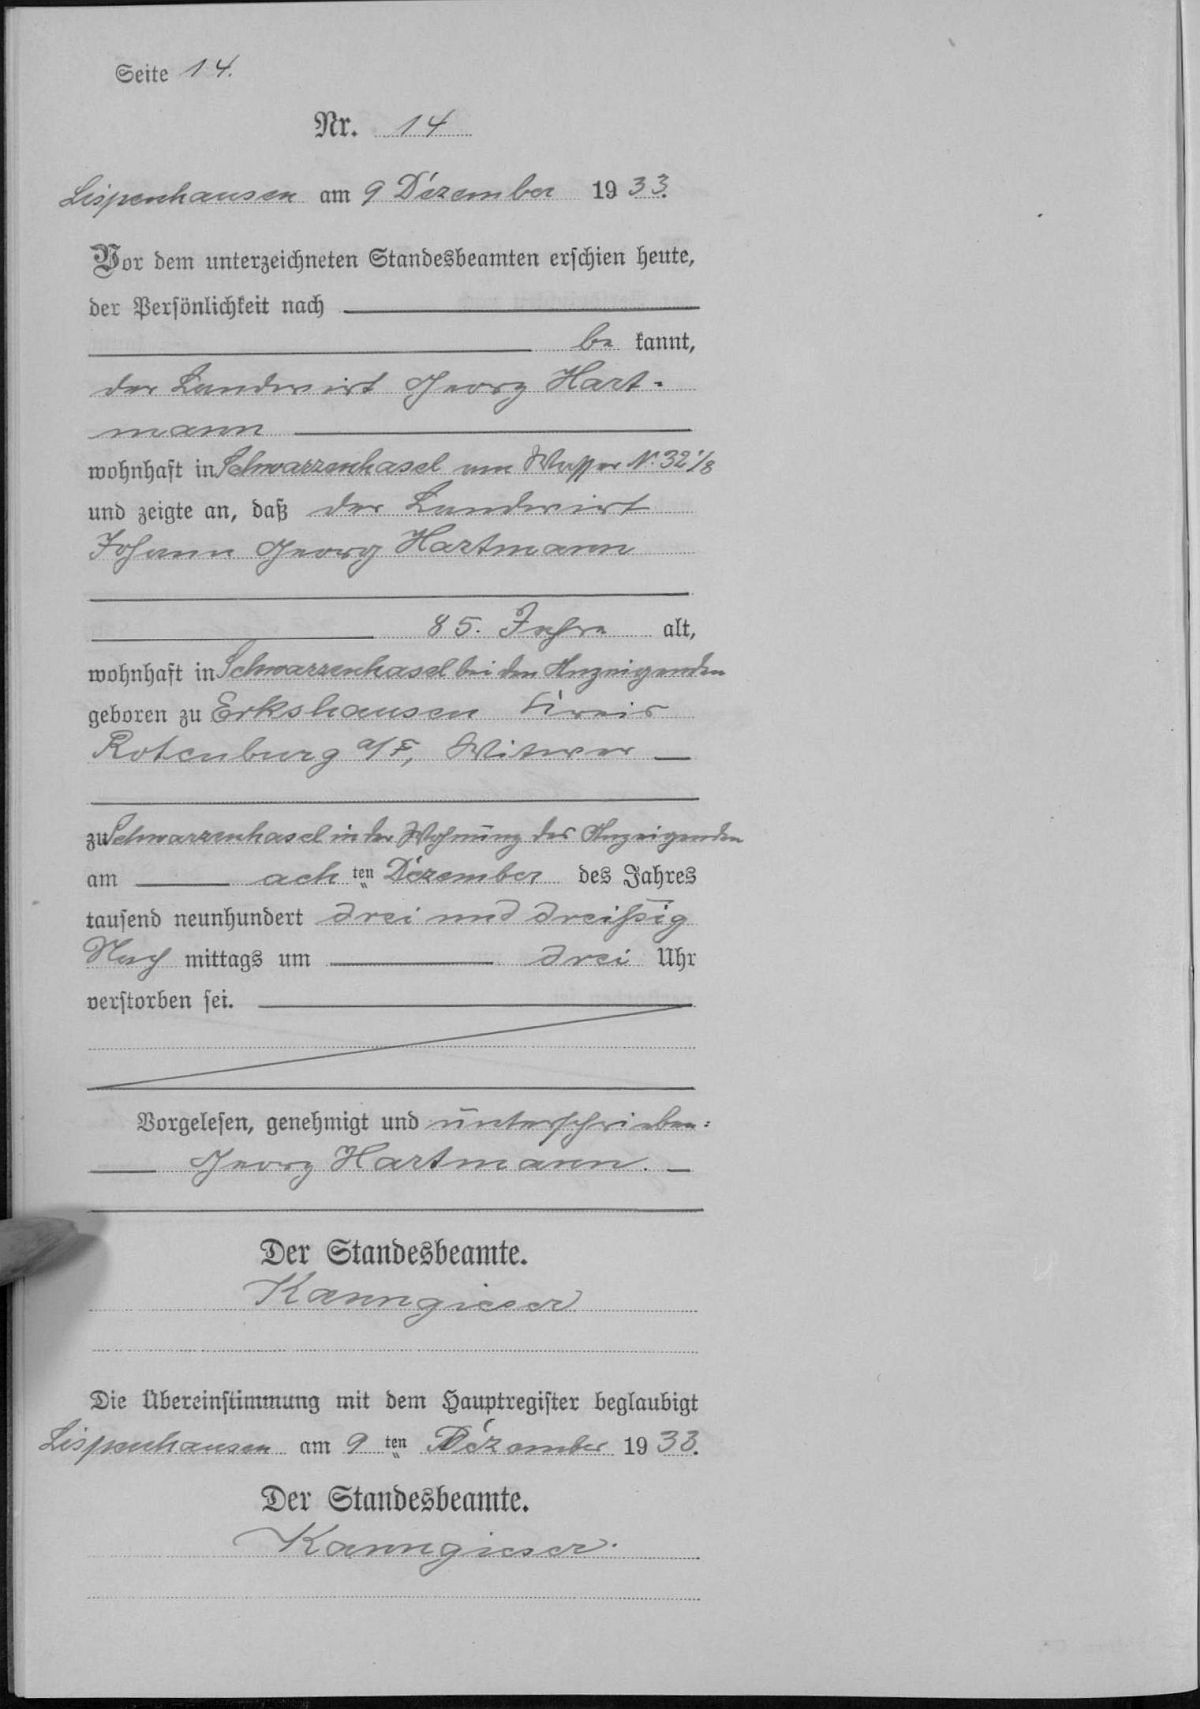 Seite 14.
Nr. 14
Lispenhausen am 9 Dezember 1933.
Vor dem unterzeichneten Standesbeamten erschien heute,
der Persönlichkeit nach
be kannt,
der Landwirt Georg Hart-
mann
wohnhaft in Schwarzenhasel am Wasser N. 32 1/8
und zeigte an, daß der Landwirt
Johann Georg Hartmann
85. Jahre alt,
wohnhaft in Schwarzenhasel bei den Anzeigenden
geboren zu Erkshausen Kreis
Rotenburg a/F, Witwer
zu Schwarzenhasel in der Wohnung des Anzeigenden
am ach ten Dezember des Jahres
tausend neunhundert drei und dreißig
Nach mittags um drei Uhr
verstorben sei.
Vorgelesen, genehmigt und unterschrieben:
Georg Hartmann.
Der Standesbeamte.
Kanngieser
Die Übereinstimmung mit dem Hauptregister beglaubigt
Lispenhausen am 9 ten Dezember 1933.
Der Standesbeamte.
Kanngieser.